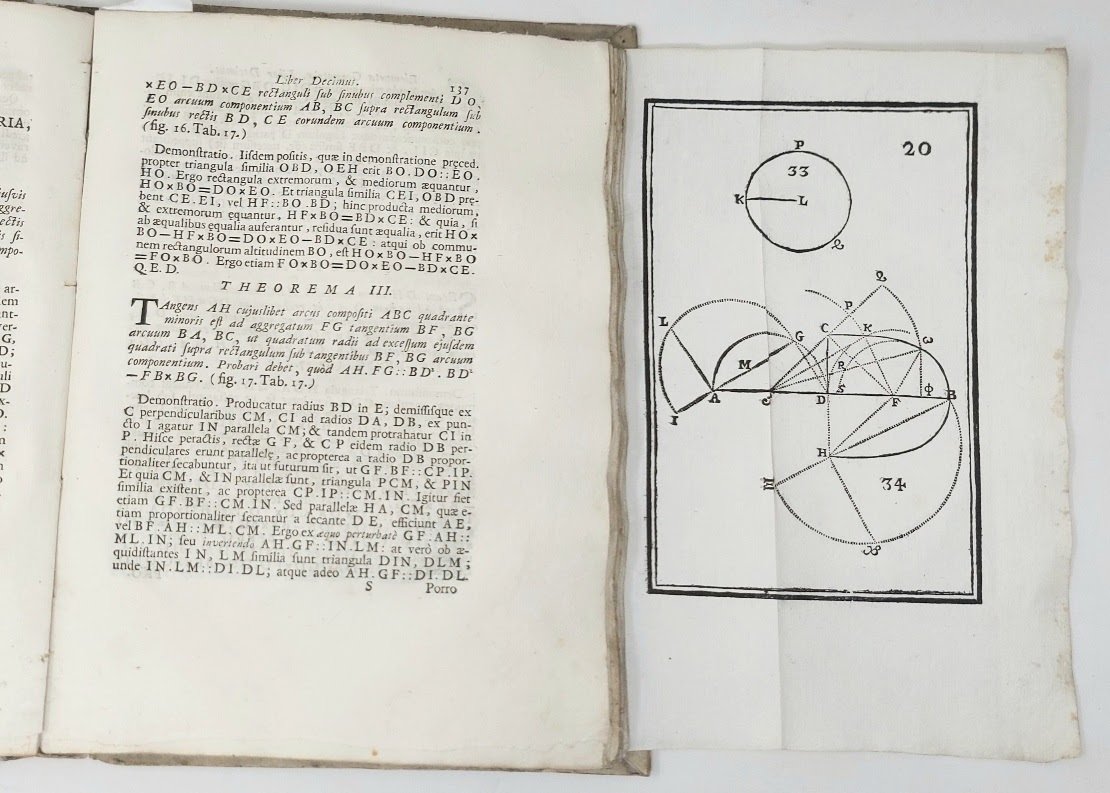 RIA,
jusvis
ggre-
rectis
is fi-
mpo-
ar-
dem
ant-
ver-
G,
D;
qu-
uli
D
x-
O.
:
o
Liber Decimus. 137
×EO—BD×CE rectanguli sub sinubus complementi DO.
EO arcuum componentium AB, BC supra rectangulum sub
sinubus rectis BD, CE eorundem arcuum componentium.
(fig. 16. Tab. 17.)
Demonstratio. Iisdem positis, quæ in demonstratione pręced.
propter triangula similia OBD, OEH erit BO.DO::EO.
HO. Ergo rectangula extremorum, & mediorum æquantur,
HO×BO=DO×EO. Et triangula similia CEI, OBD prę-
bent CE.EI, vel HF::BO.BD; hinc producta mediorum,
& extremorum equantur, HF×BO=BD×CE: & quia, si
ab æqualibus equalia auferantur, residua sunt æqualia, erit HO×
BO—HF×BO=DO×EO—BD×CE: atqui ob commu-
nem rectangulorum altitudinem BO, est HO×BO—HF×BO
=FO×BO. Ergo etiam FO×BO=DO×EO—BD×CE.
Q.E.D.
THEOREMA III.
TAngens AH cujuslibet arcus compositi ABC quadrante
minoris est ad aggregatum FG tangentium BF, BG
arcuum BA, BC, ut quadratum radii ad excessum ejusdem
quadrati supra rectangulum sub tangentibus BF, BG arcuum
componentium. Probari debet, quòd AH.FG::BD². BD²
—FB×BG. (fig. 17. Tab. 17.)
Demonstratio. Producatur radius BD in E; demissisque ex
C perpendicularibus CM, CI ad radios DA, DB, ex pun-
cto I agatur IN parallela CM; & tandem protrahatur CI in
P. Hisce peractis, rectæ GF, & CP eidem radio DB per-
pendiculares erunt parallelę, ac propterea a radio DB propor-
tionaliter secabuntur, ita ut futurum sit, ut GF.BF::CP.IP.
Et quia CM, & IN parallelæ sunt, triangula PCM, & PIN
similia existent, ac propterea CP.IP::CM.IN. Igitur fiet
etiam GF.BF::CM.IN. Sed parallelæ HA, CM, quæ e-
tiam proportionaliter secantur a secante DE, efficiunt AE,
vel BF.AH::ML.CM. Ergo ex æquo perturbatè GF.AH::
ML.IN; seu invertendo AH.GF::IN.LM: at verò ob æ-
quidistantes IN, LM similia sunt triangula DIN, DLM;
unde IN.LM::DI.DL; atque adeo AH.GF::DI.DL.
S Porro
20
P
33
K L
Q
Q
P
L
G C K
ω
M
R
A D S F Φ B
I
H
34